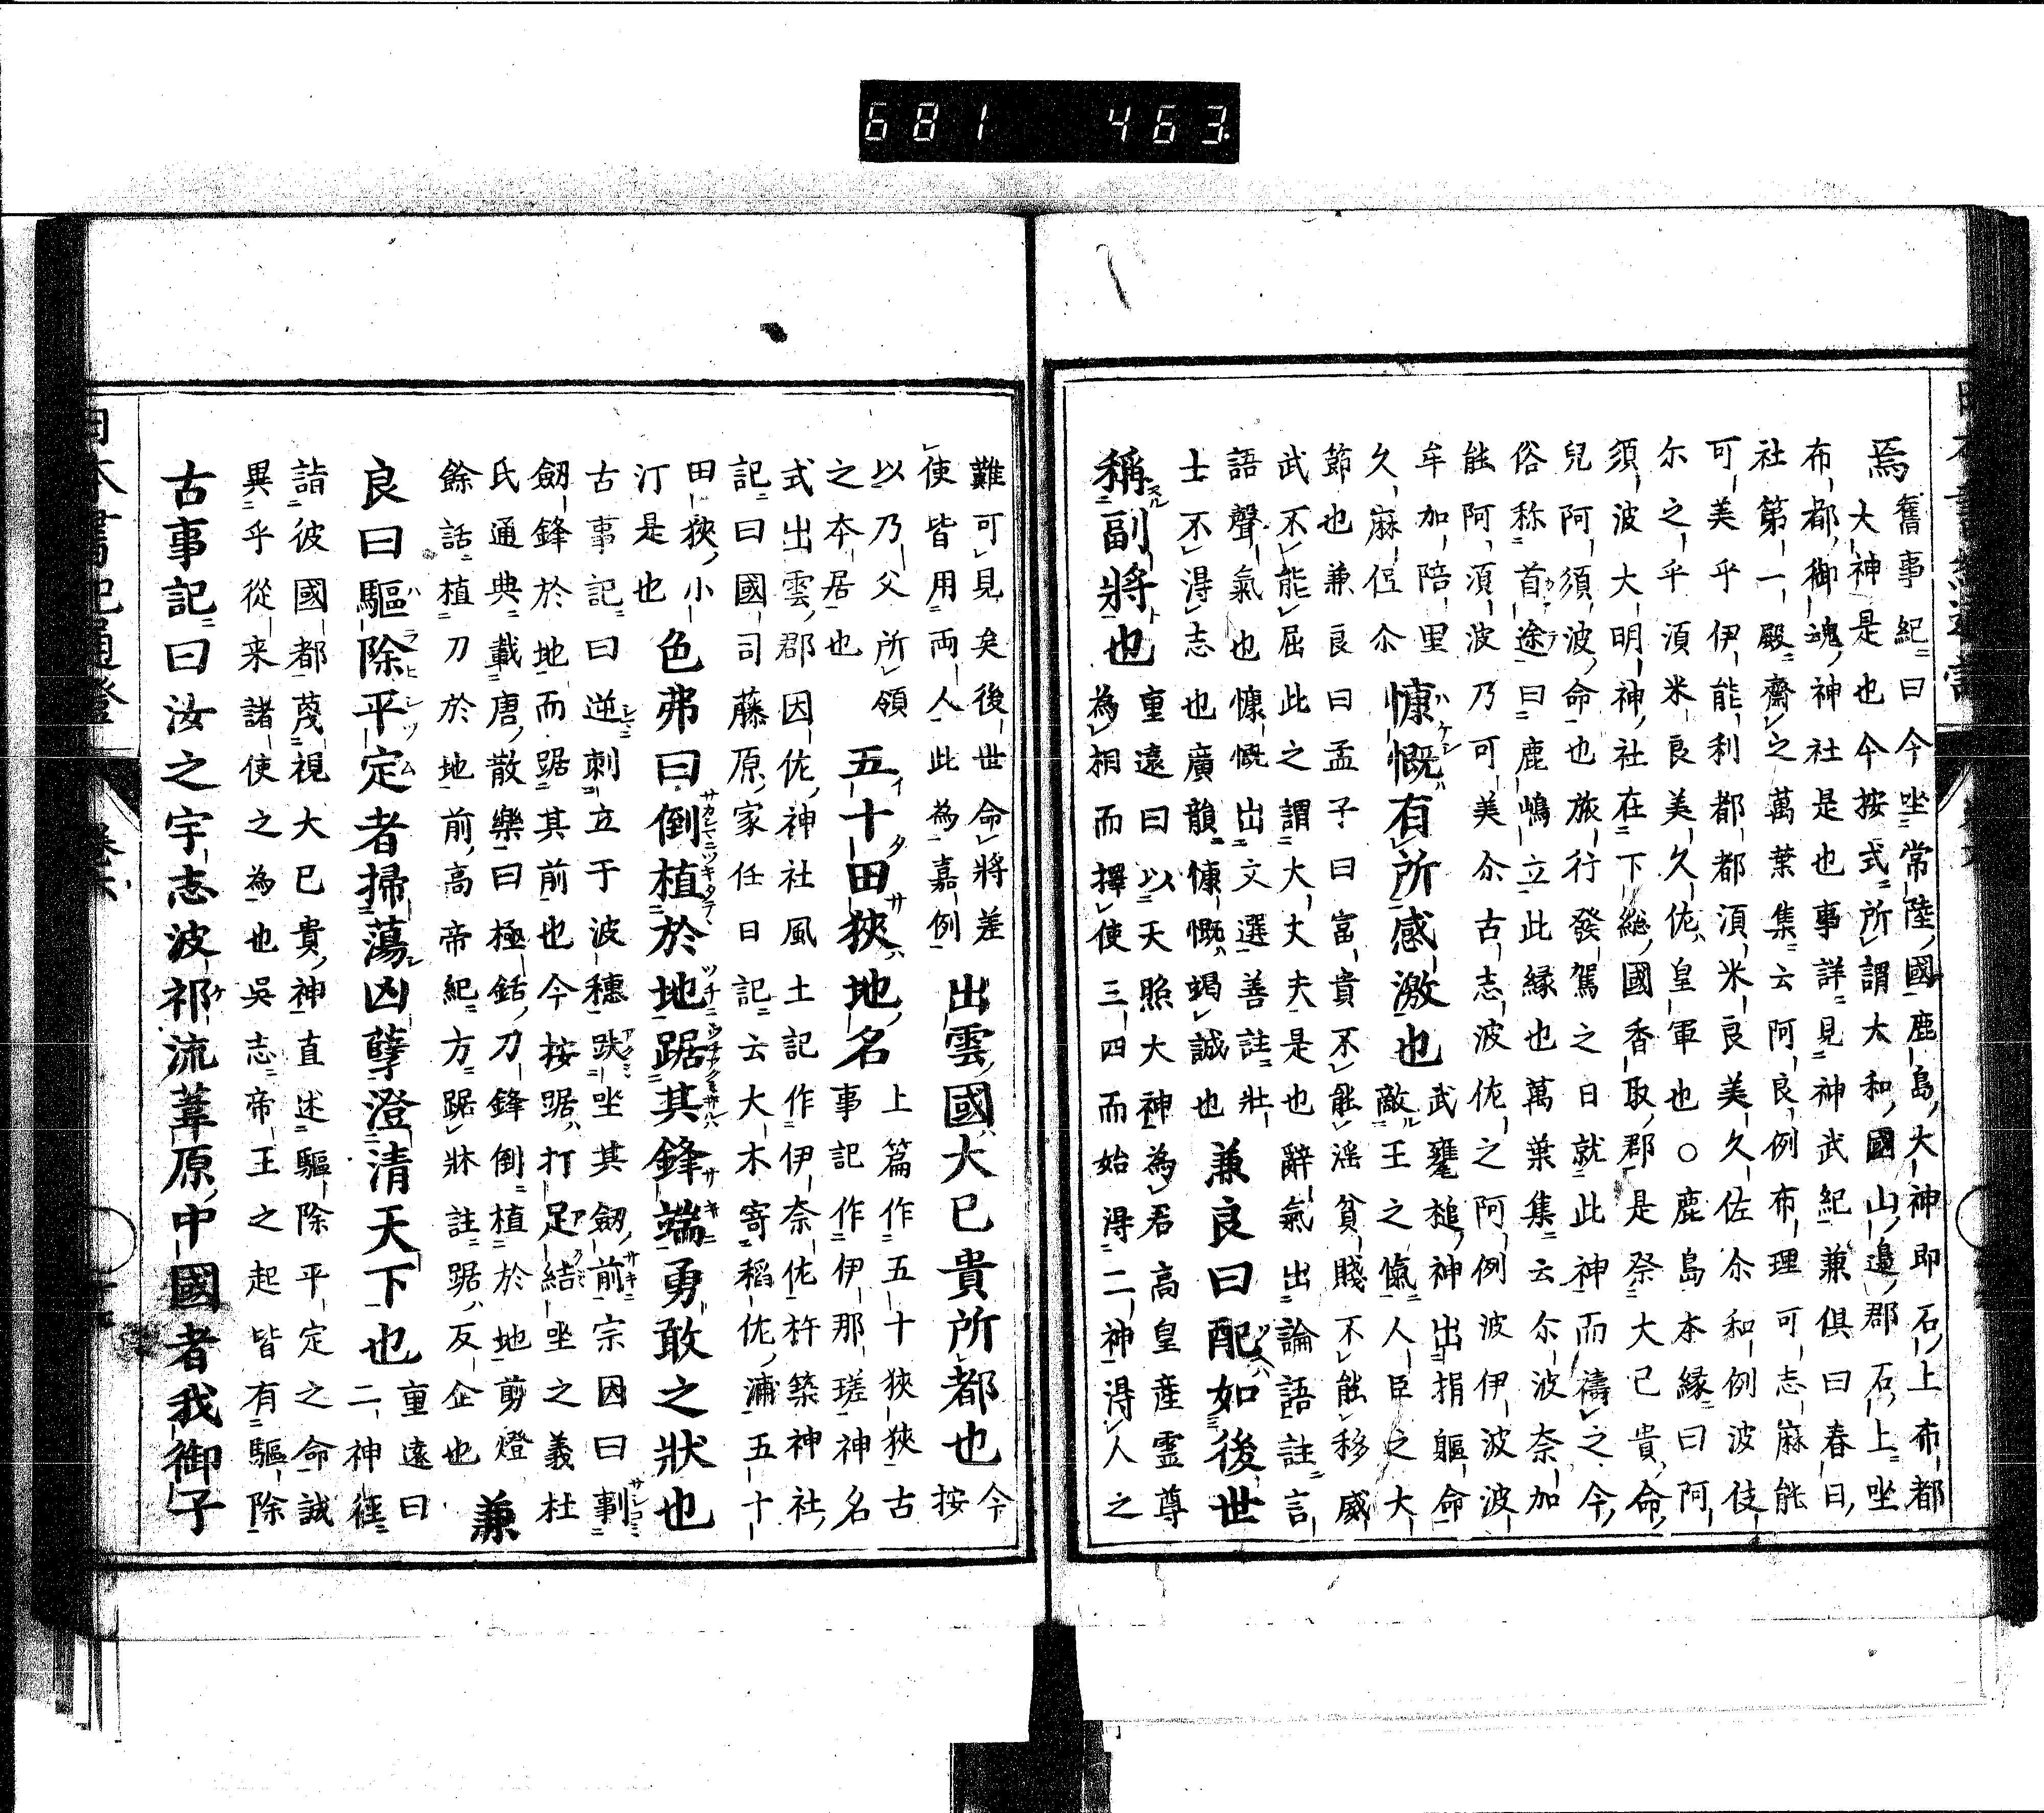 焉
舊事紀曰今坐常陸國鹿島大神即石上布都
大神是也今按式所謂大和國山邉郡石上坐
布都御魂神社是也事詳見神武紀兼俱曰春日
社第一殿齋之萬葉集云阿良例布理可志麻能
可美乎伊能利都都須米良美久佐尓和例波伎
尓之乎須米良美久佐皇軍也○鹿島本縁曰阿
須波大明神社在下総國香取郡是祭大己貴命
兒阿須波命也旅行發駕之日就此神而禱之今
俗称首途曰鹿嶋立此縁也萬葉集云尓波奈加
能阿須波乃可美尓古志波佐之阿例波伊波波
牟加陪里
久麻侣尓
慷慨有所感激也
武甕槌神出捐軀命
敵王之愾人臣之大
節也兼良曰孟子曰富貴不能滛貧賤不能移威
武不能屈此之謂大丈夫是也辭氣出論語註言
語聲氣也慷慨出文選善註壯
士不得志也廣韻慷慨竭誠也
兼良曰配如後世
稱副將也
重遠曰以天照大神為君高皇産霊尊
為相而擇使三四而始得二神得人之
難可見矣後世命將差
使皆用両人此為嘉例
出雲國大已貴所都也
今
按
以乃父所領
之本居也
五十田狹地名
上篇作五十狹狹古
事記作伊那瑳神名
式出雲郡因佐神社風土記作伊奈佐杵築神社
記曰國司藤原家任日記云大木寄稻佐浦五十
田狹小
汀是也
色弗曰倒植於地踞其鋒端勇敢之狀也
古事記曰逆刺立于波穗趺坐其劔前宗因曰剚
劔鋒於地而踞其前也今按踞打足結坐之義杜
氏通典載唐散樂曰極銛刀鋒倒植於地剪燈
餘話植刀於地前高帝紀方踞牀註踞反企也
兼
良曰驅除平定者掃蕩凶孽澄清天下也
重遠曰
二神徑
詣彼國都蔑視大已貴神直述驅除平定之命誠
異乎從来諸使之為也吳志帝王之起皆有驅除
古事記曰汝之宇志波祁流葦原中國者我御子